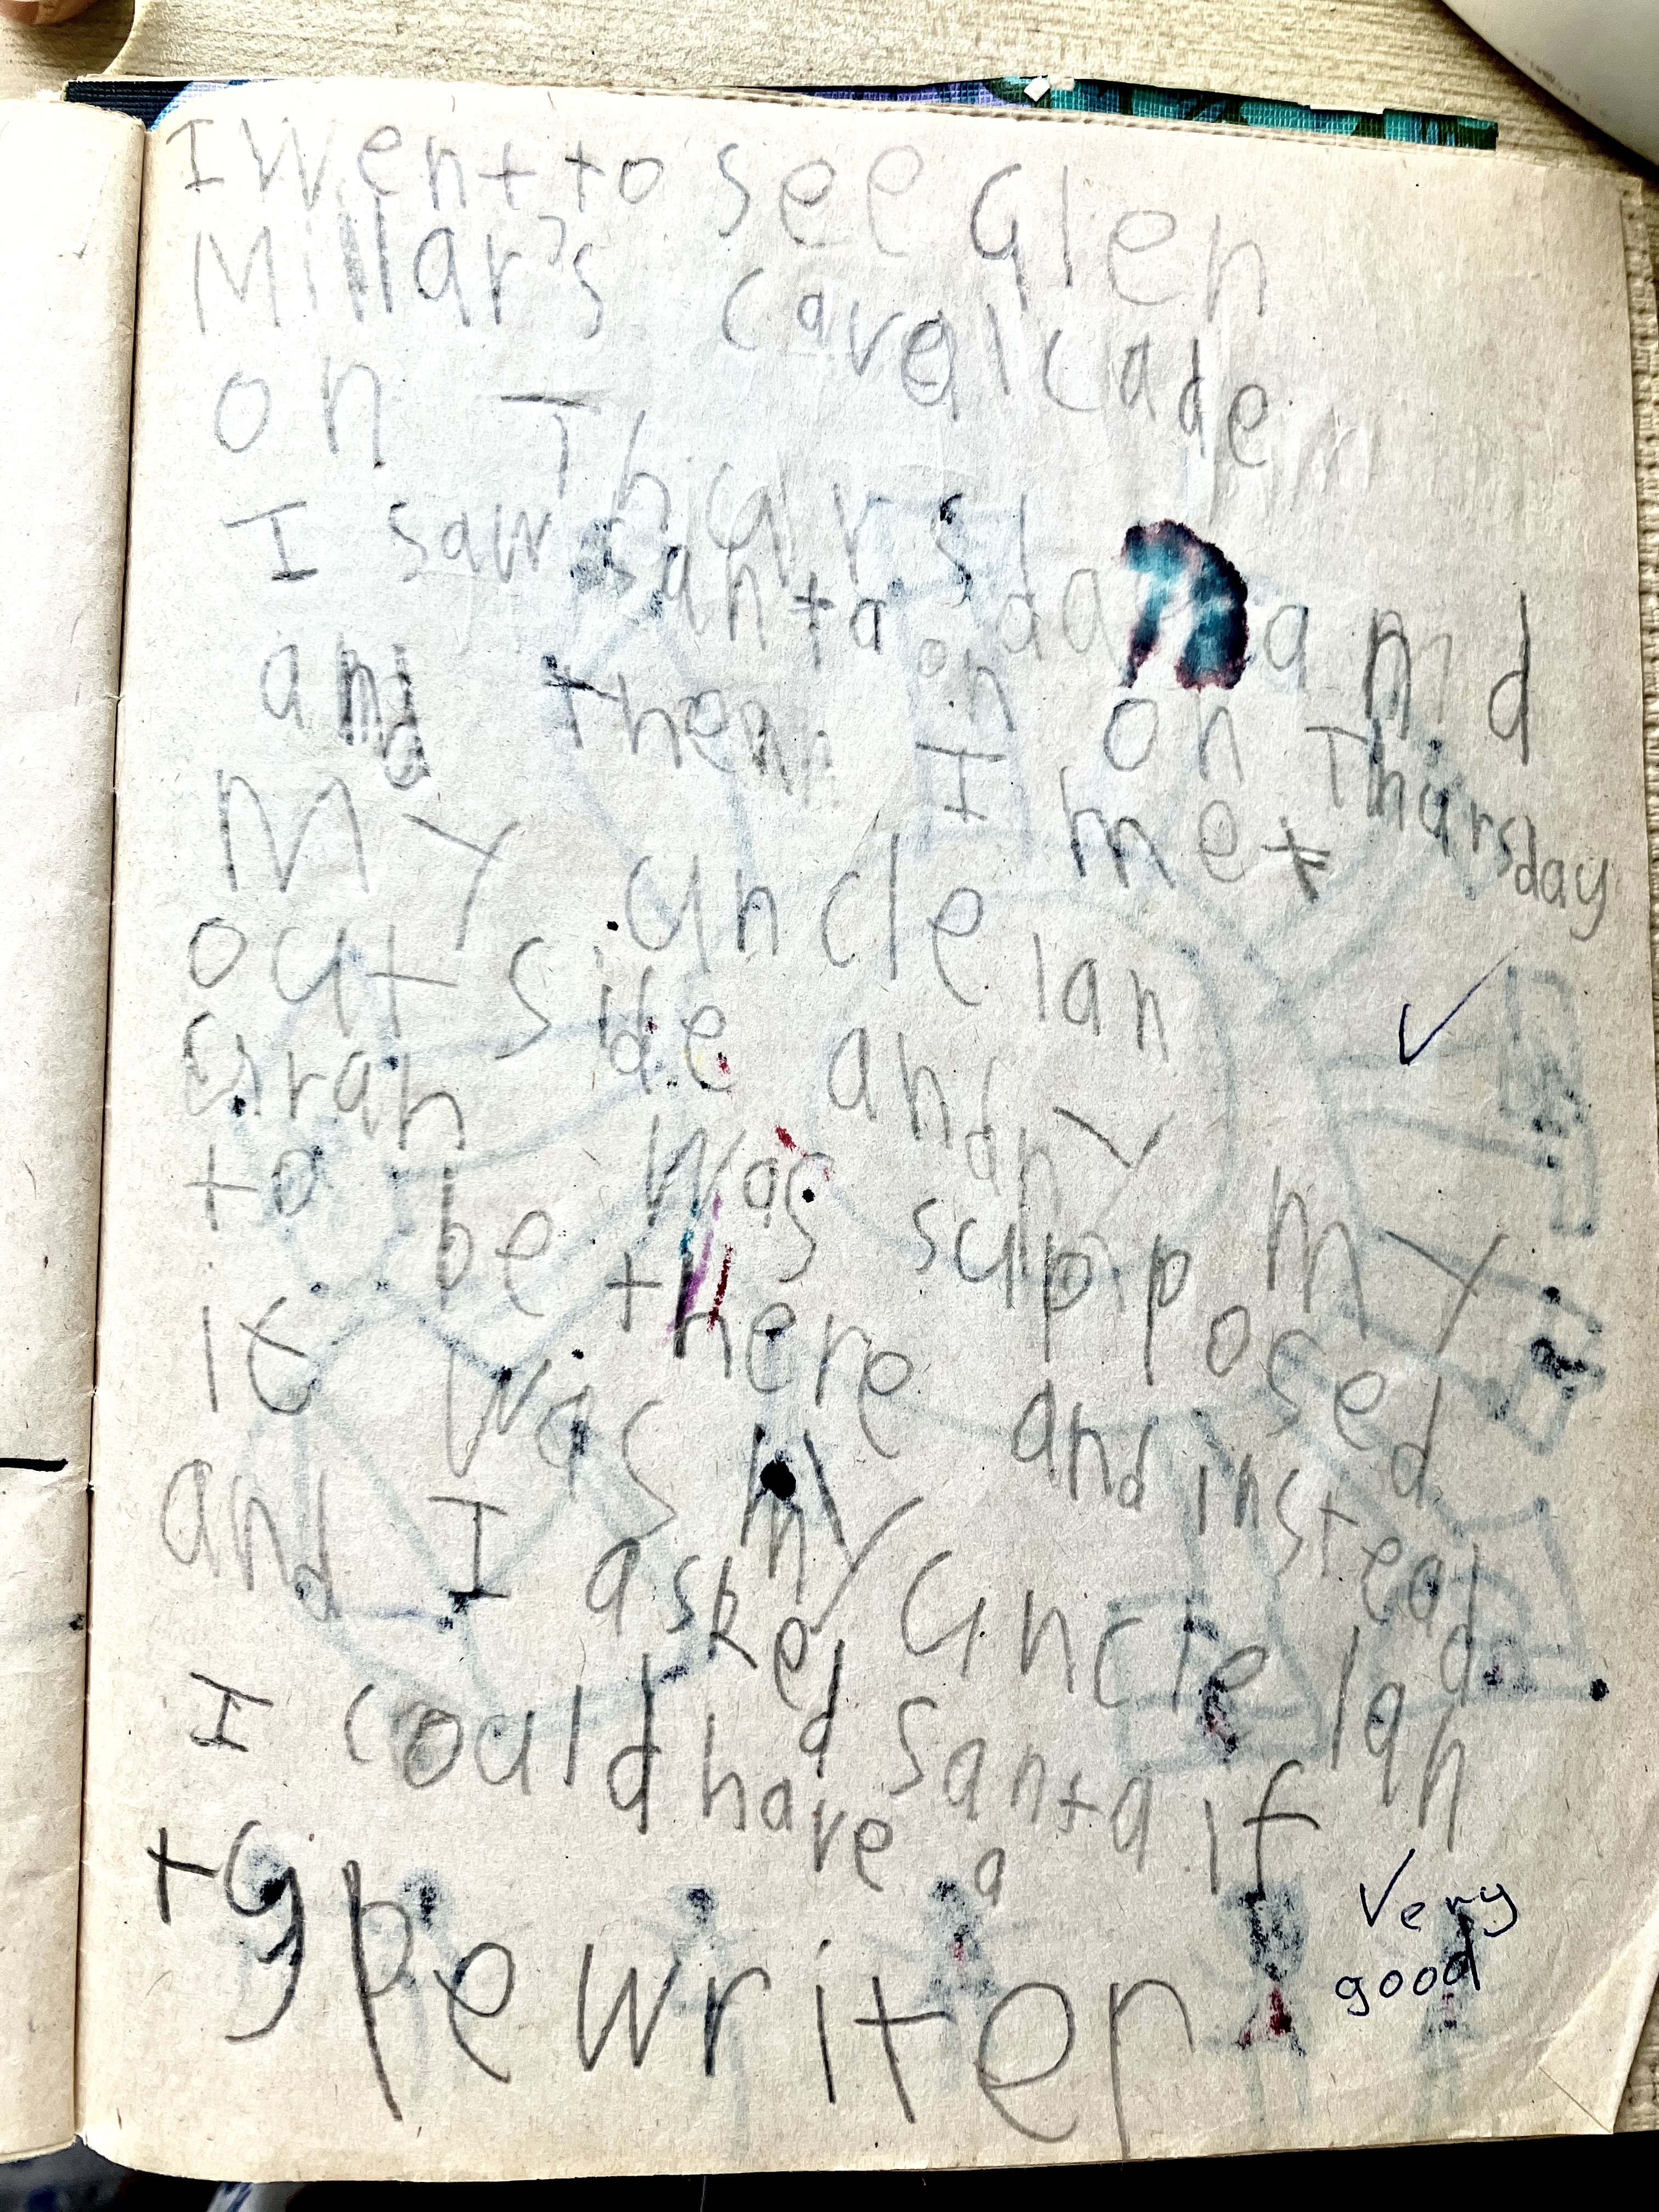 I went to see Glen
Millar's cavalcade
on Thursday and
I saw santa on on Thursday
and then I met
My uncle Ian
out side and my
Gran was supposed
to be there and instead
it was my uncle Ian
and I asked santa if
I could have a
typewriter
Very
good